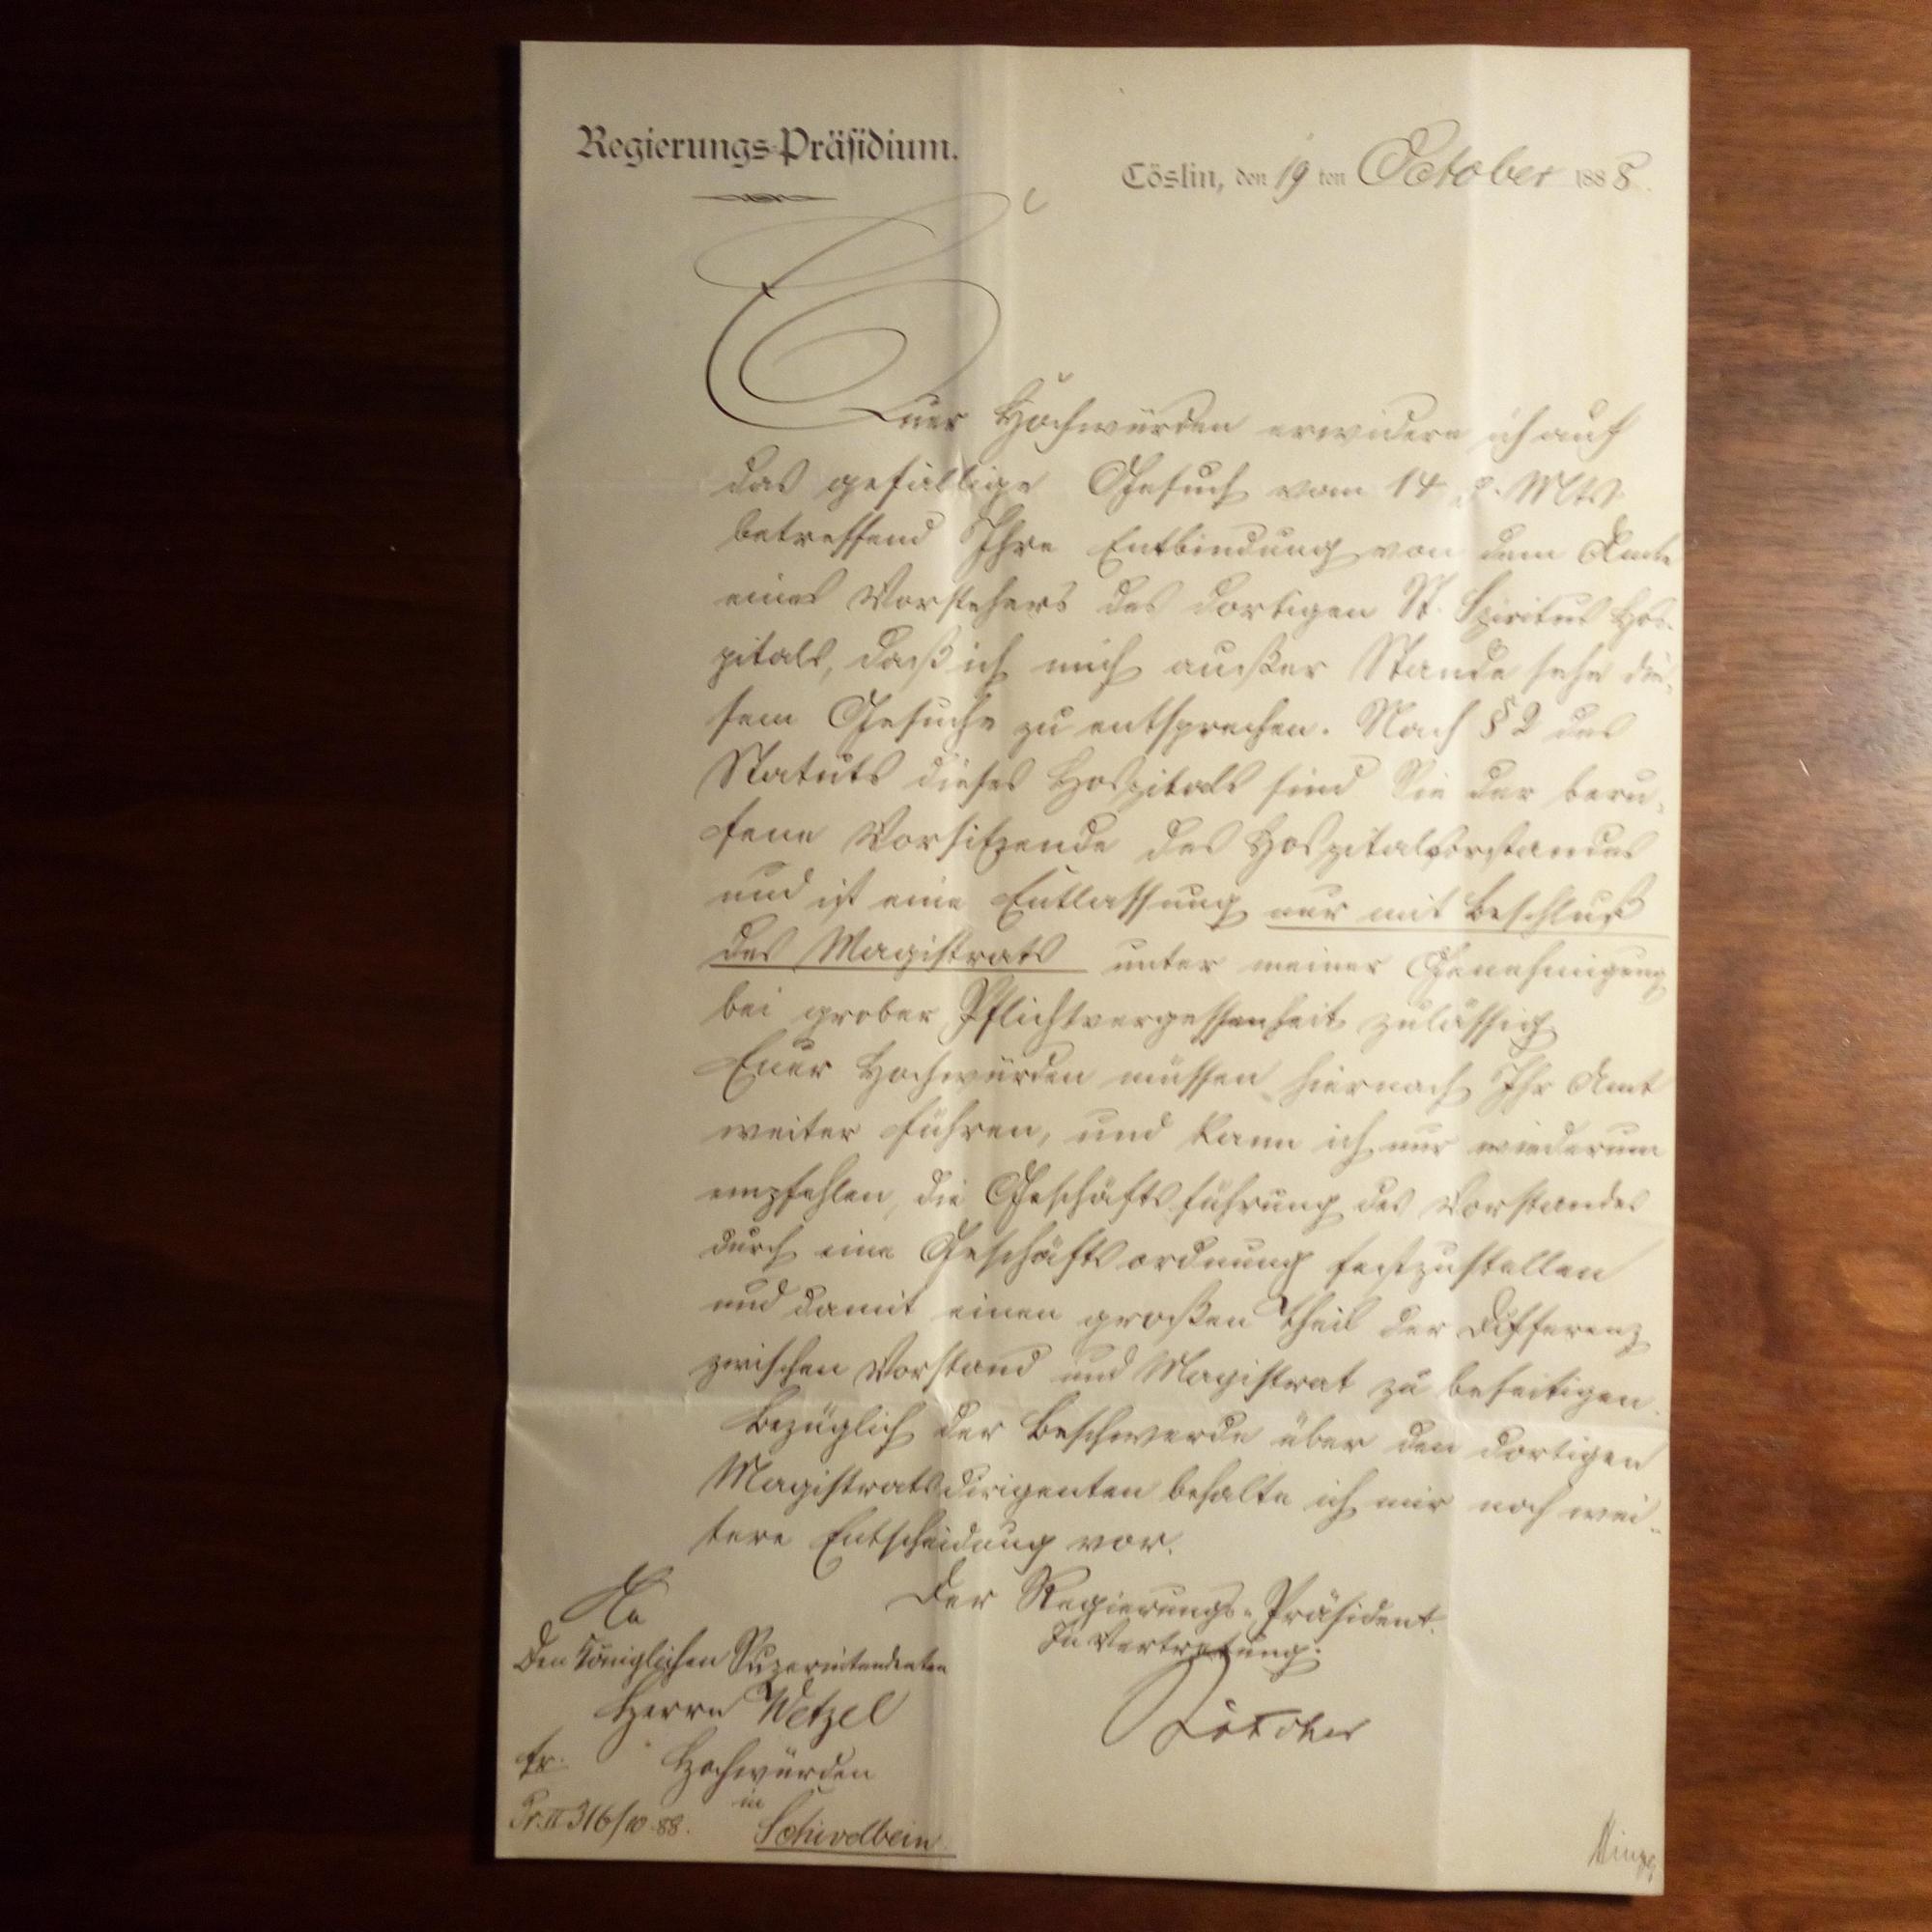 Regierungs-Präsidium.
Cöslin, den 19 ten October 1888.
Euer Hochwürden erwidere ich auf
das gefällige Gesuch vom 14 d. Mts
betreffend Ihre Entbindung von dem Amte
eines Vorstehers des dortigen St. Spiritus Hos-
pitals, daß ich mich außer Stande sehe die-
sem Gesuche zu entsprechen. Nach § 2 des
Statuts dieses Hospitals sind Sie der beru-
fene Vorsitzende des Hospitalvorstandes
und ist eine Entlassung nur mit Beschluß
des Magistrats unter meiner Genehmigung
bei grober Pflichtvergessenheit zulässig
Euer Hochwürden müssen hiernach Ihr Amt
weiter führen, und kann ich nur wiederum
empfehlen, die Geschäftsführung des Vorstandes
durch eine Geschäftsordnung festzustellen
und damit einen großen Theil der Differenz
zwischen Vorstand und Magistrat zu beseitigen.
Bezüglich der Beschwerde über den dortigen
Magistratsdirigenten behalte ich mir noch wei-
tere Entscheidung vor.
Der Regierungs-Präsident.
In Vertretung:
An
Den Königlichen Superintendenten
Herrn Wetzel
Hochwürden
in
Schivelbein.
Pr. II 316/10.88.